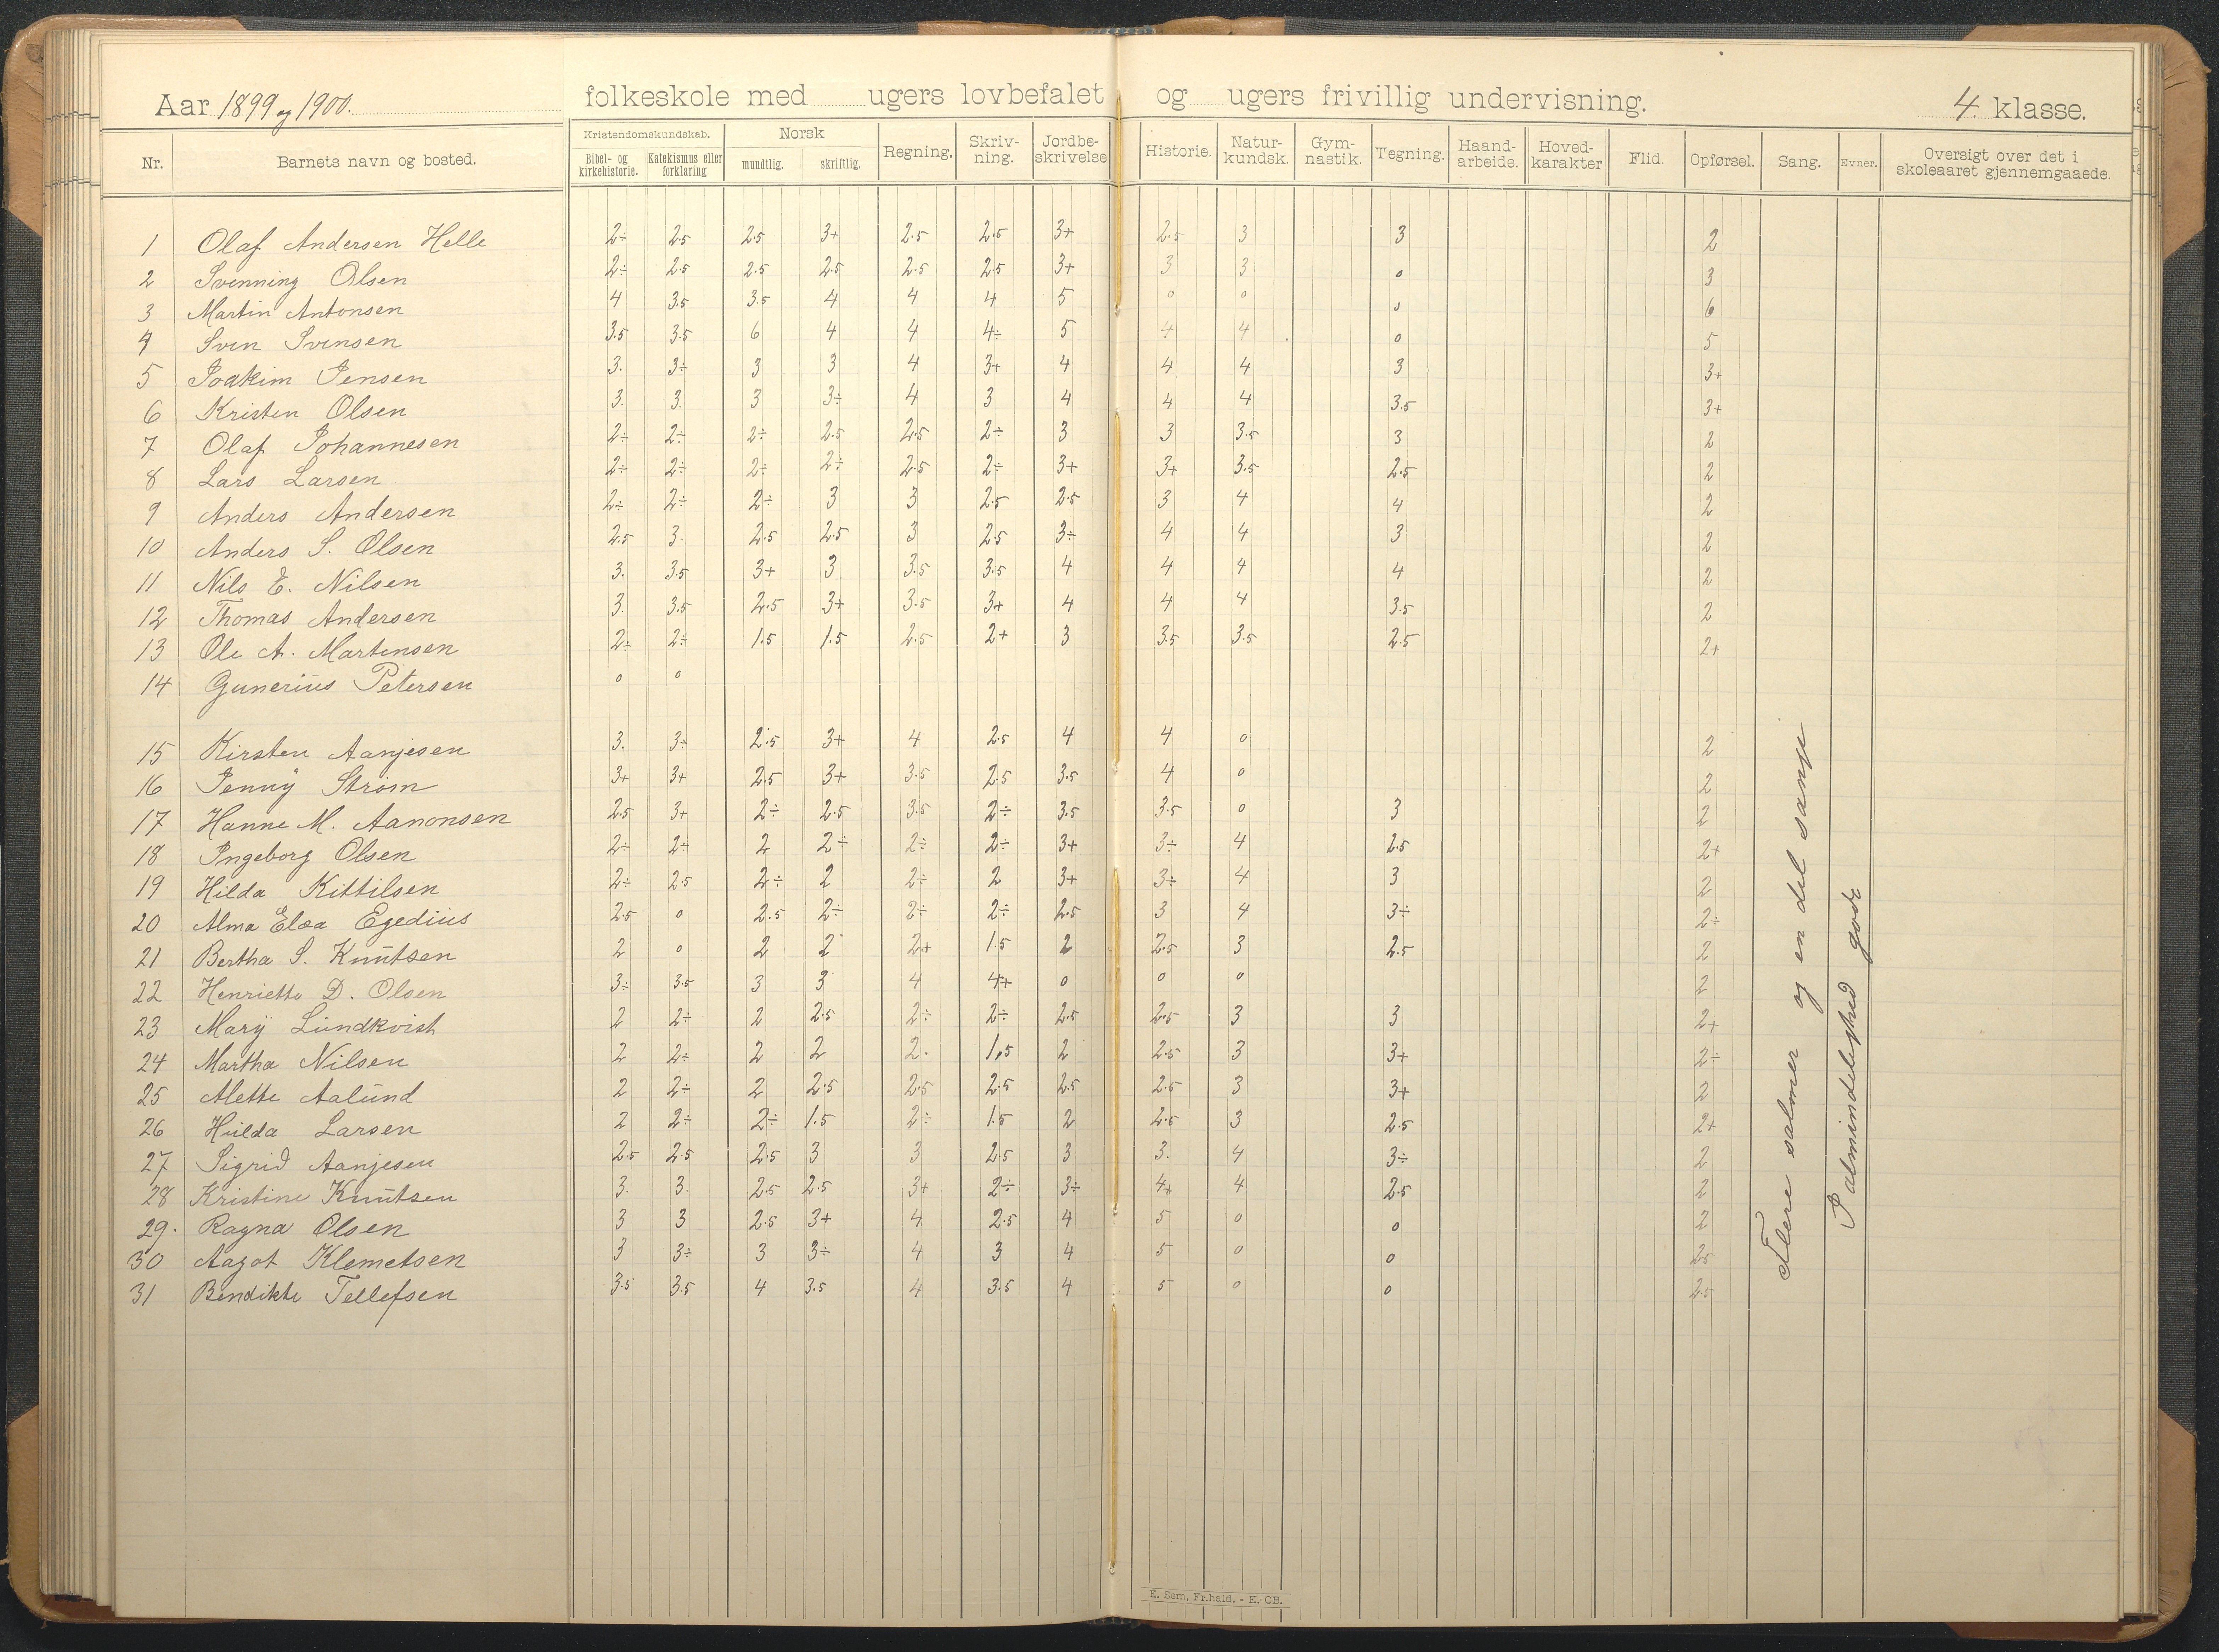 Aar 1899 og 1900. folkeskole med ugers lovbefalet og ugers frivillig undervisning. 4. klasse.
Nr. Barnets navn og bosted. Kristendomskundskab. Bibel- og kirkehistorie. Katekismus eller forklaring Norsk mundtlig. skriftlig. Regning. Skriv-ning. Jordbe-skrivelse Historie. Natur-kundsk. Gym-nastik. Tegning. Haand-arbeide. Hoved-karakter Flid. Opførsel. Sang. Evner. Oversigt over det i skoleaaret gjennemgaaede.
1 Olaf Andersen Helle 2÷ 2.5 2.5 3+ 2.5 2.5 3+ 2.5 3 3 2
2 Svenning Olsen 2÷ 2.5 2.5 2.5 2.5 2.5 3+ 3 3 0 3
3 Martin Antonsen 4 3.5 3.5 4 4 4 5 0 0 0 6
4 Sven Svensen 3.5 3.5 6 4 4 4÷ 5 4 4 0 5
5 Joakim Jensen 3. 3÷ 3 3 4 3+ 4 4 4 3 3+
6 Kristen Olsen 3. 3. 3 3÷ 4 3 4 4 4 3.5 3+
7 Olaf Johannesen 2÷ 2÷ 2÷ 2.5 2.5 2÷ 3 3 3.5 3 2
8 Lars Larsen 2÷ 2÷ 2÷ 2÷ 2.5 2÷ 3+ 3+ 3.5 2.5 2
9 Anders Andersen 2÷ 2÷ 2÷ 3 3 2.5 2.5 3 4 4 2
10 Anders S. Olsen 2.5 3. 2.5 2.5 3 2.5 3÷ 4 4 3 2
11 Nils E. Nilsen 3. 3.5 3+ 3 3.5 3.5 4 4 4 4 2
12 Thomas Andersen 3. 3.5 2.5 3+ 3.5 3+ 4 4 4 3.5 2
13 Ole A. Martensen 2÷ 2÷ 1.5 1.5 2.5 2+ 3 3.5 3.5 2.5 2+
14 Gunerius Petersen 0 0
15 Kirsten Aanjesen 3. 3÷ 2.5 3+ 4 2.5 4 4 0 2
16 Jenny Strøm 3+ 3+ 2.5 3+ 3.5 2.5 3.5 4 0 2
17 Hanne M. Aanonsen 2.5 3+ 2÷ 2.5 3.5 2÷ 3.5 3.5 0 3 2
18 Ingeborg Olsen 2÷ 2÷ 2 2÷ 2÷ 2÷ 3+ 3÷ 4 2.5 2+
19 Hilda Kittilsen 2÷ 2.5 2÷ 2 2÷ 2 3+ 3÷ 4 3 2
20 Alma Elea Egedius 2.5 0 2.5 2÷ 2÷ 2÷ 2.5 3 4 3÷ 2÷
21 Bertha S. Knutsen 2 0 2 2 2+ 1.5 2 2.5 3 2.5 2
22 Henriette D. Olsen 3÷ 3.5 3 3 4 4+ 0 0 0 2
23 Mary Lundkvist 2 2÷ 2 2.5 2÷ 2÷ 2.5 2.5 3 3 2+
24 Martha Nilsen 2 2÷ 2 2 2. 1.5 2 2.5 3 3+ 2÷
25 Mette Aalund 2 2÷ 2 2.5 2.5 2.5 2.5 2.5 3 3+ 2
26 Hulda Larsen 2 2÷ 2÷ 1.5 2÷ 1.5 2 2.5 3 2.5 2+
27 Sigrid Aanjesen 2.5 2.5 2.5 3 3 2.5 3 3. 4 3÷ 2
28 Kristine Knutsen 3. 3. 2.5 2.5 3+ 2÷ 3÷ 4+ 4 2.5 2
29. Ragna Olsen 3 3 2.5 3+ 4 2.5 4 5 0 0 2
30 Aagot Klemetsen 3 3÷ 3 3÷ 4 3 4 5 0 0 2.5
31 Bendikte Tellefsen 3.5 3.5 4 3.5 4 3.5 4 5 0 0 2.5
Flere salmer og en del sange
I almindelighed gode
E. Sem, Fr.hald. - E. CB.